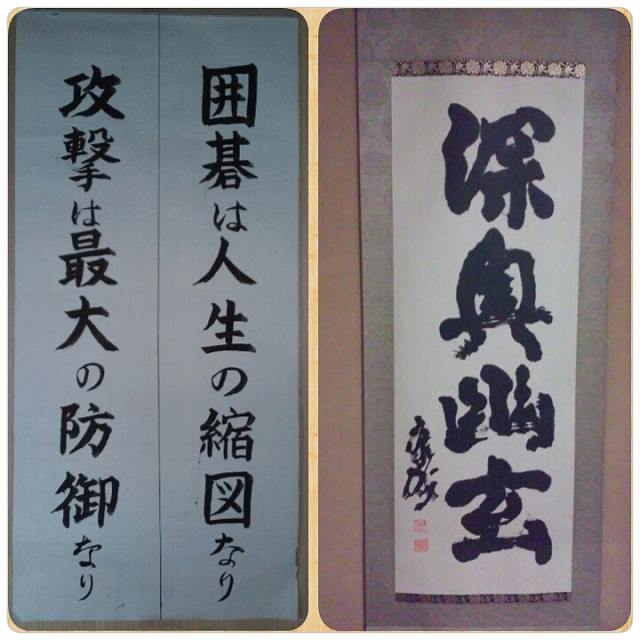 囲碁は人生の縮図なり
攻撃は最大の防御なり
深奥幽玄